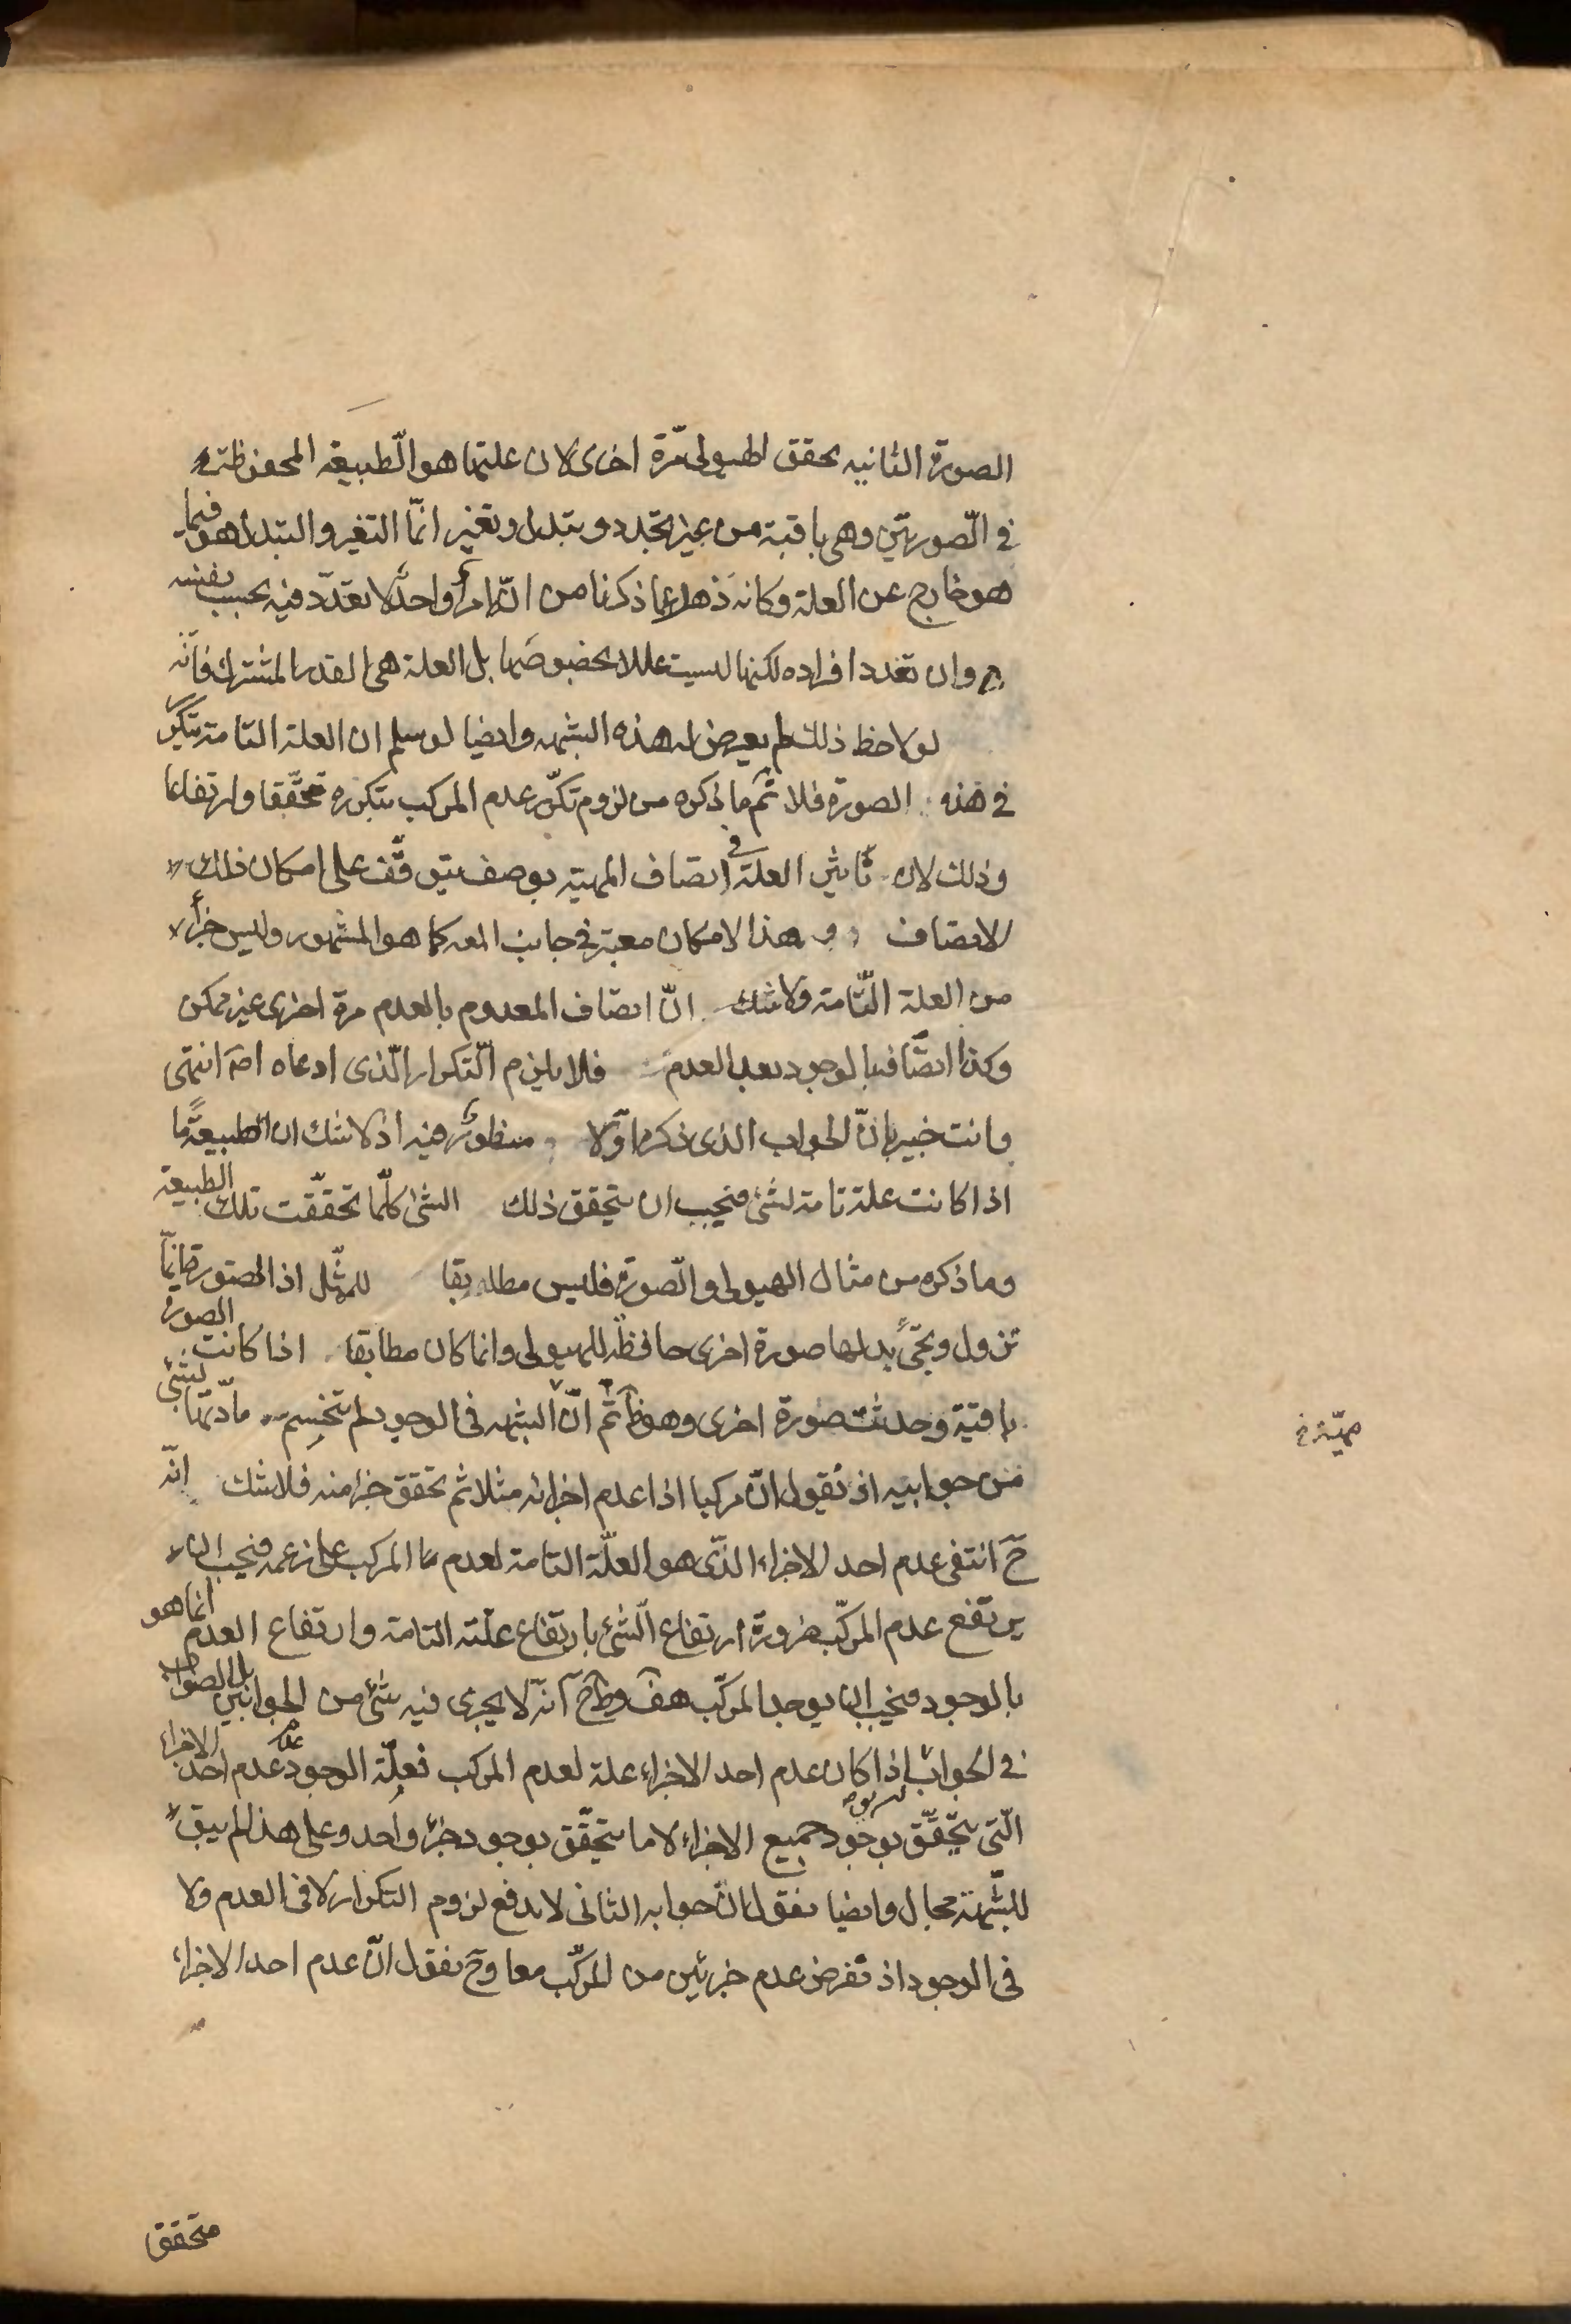 الصورة الثانيه تحقق الهيولى مرّة اخرى لان علتها هو الطّبيعه المحفوظة
فى الصّورتين وهى باقية من غير تجدد وتبدل وتغير انّما التغير والتبدل هو فيما
هو خارج عن العلة وكانه ذهل عما ذكرنا من انّه امرٌ واحدٌ لا تعدّد فيه بحسب نفسه
وان تعدد افراده لكنها ليست عللا بخصوصها بل العلة هى القدر المشترك فانّه
لو لاحظ ذلك لم يعرض له هذه الشبهه وايضا لو سلم ان العلة التامة تتكرّر
فى هذه الصورة فلا ثم ما ذكره من لزوم تكرّر عدم المركب بتكرره تحقّقا وارتفاعا
وذلك لان تأثير العلة فى اتصاف المهية بوصف يتوقّف على امكان ذلك
الاتصاف وهذا الامكان معتبر فى جانب المعه كما هو المشهور وليس جزأ
من العلة التّامة ولا شك انّ اتصاف المعدوم بالعدم مرة اخرى غير ممكن
وكذا اتصّافه بالوجود بعد العدم فلا يلزم التّكرار الّذى ادعاه اصه انتهى
وانت خبير بانّ الجواب الذى ذكره اوّلا منظورٌ فيه اذ لا شك ان الطبيعة ما
اذا كانت علة تامة لشئ فيجب ان يتحقق ذلك الشئ كلّما تحقّقت تلك الطبيعة
وما ذكره من مثال الهيولى والصّورة فليس مطابقا للمثّل اذا الصورة انّما
تزول ويجئ بدلها صورة اخرى حافظة للهيولى وانما كان مطابقا اذا كانت الصورة
باقية وحدثت صورة اخرى وهو ظ ثم انّ الشبهه فى الوجود لم تنحسم مادّتها بشئ
من جوابيه اذ نقول انّ مركبا اذا عدم اجزائه مثلا ثم تحقق جزء منه فلا شك انّه
ح انتفى عدم احد الاجزاء الذّى هو العلّة التامة لعدم المركب على زعمه فيجب ان
يرتفع عدم المركّب ضرورة ارتفاع الشّئ بارتفاع علّته التامة وارتفاع العدم انما هو
بالوجود فيجب ان يوجد المركّب هف وظ ح انّه لا يجرى فيه شئ من الجوابين بل الصواب
فى الجواب اذا كان عدم احد الاجزاء علة لعدم المركب فعلّة الوجود عدم عدم احد الاجزاء
الّتى يتحقّق بوجود جميع الاجزاء لا ما يتحقّق بوجود جزء واحد وعلى هذا لم يبق
للشّبهة مجال وايضا نقول انّ جوابه الثانى لا يدفع لزوم التكرار لا فى العدم ولا
فى الوجود اذ نفرض عدم جزئين من المركّب معا وح نقول انّ عدم احد الاجزاء
متحقق